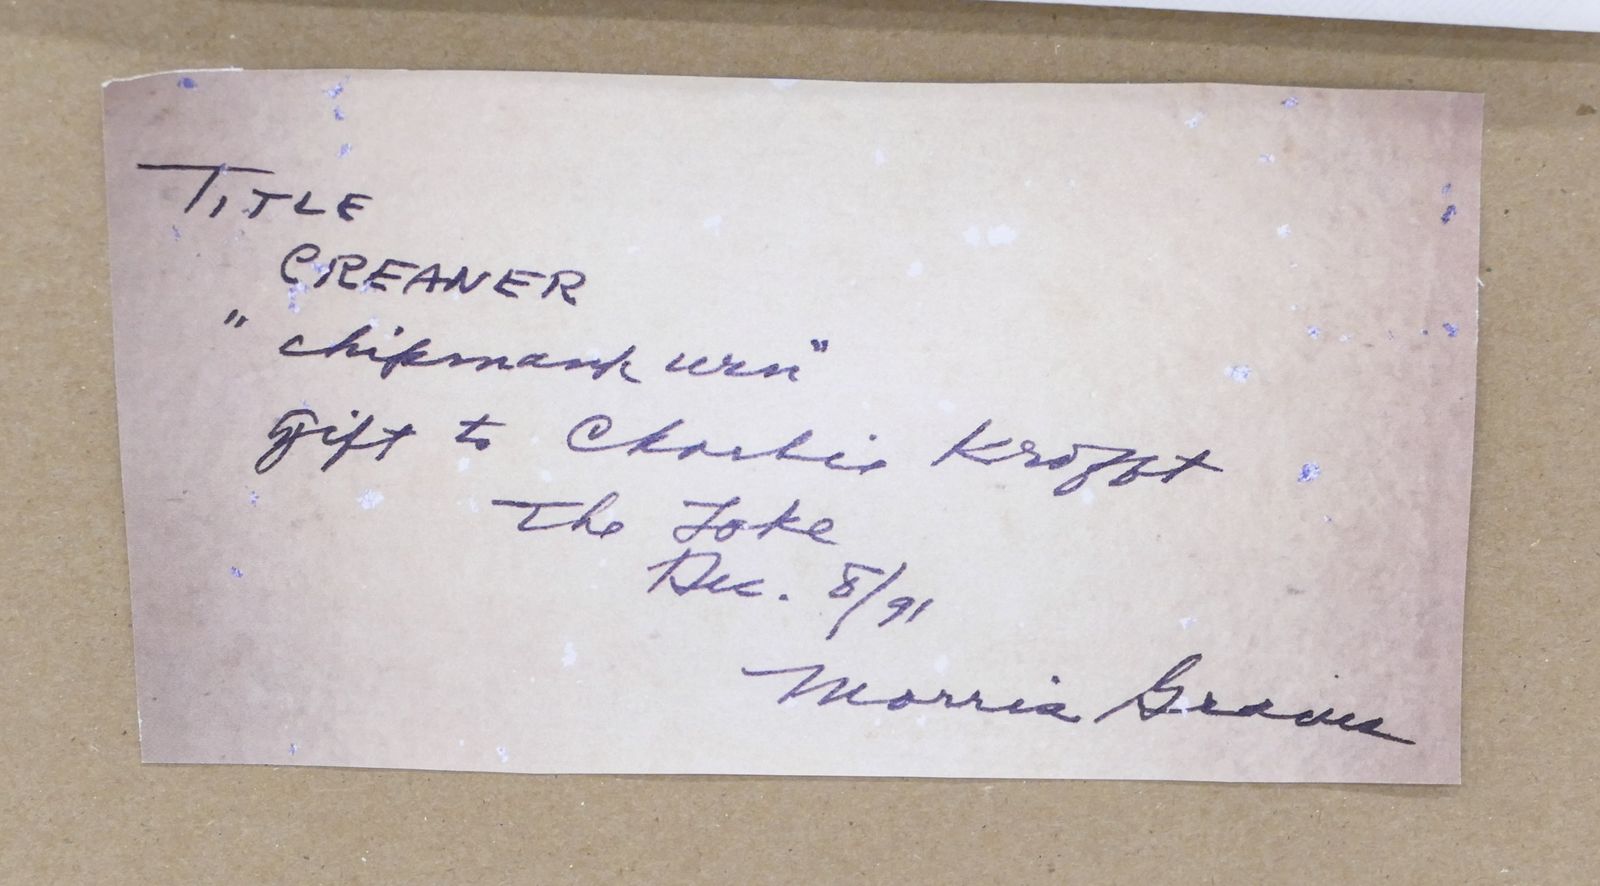 TITLE
CREANER
"chipmank urn"
gift to Charlie Krofft
The Loke
Dec. 8/91
Morris Graves